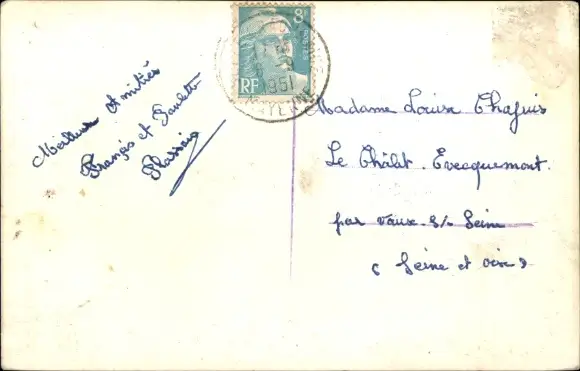 Meilleures Amitiés
François et Paulette
8F
POSTES
RF
1951
YENNE
Madame Louise Chapuis
Le Châlet. Evecquemont.
par Vaux. S/. Seine
( Seine et oise )